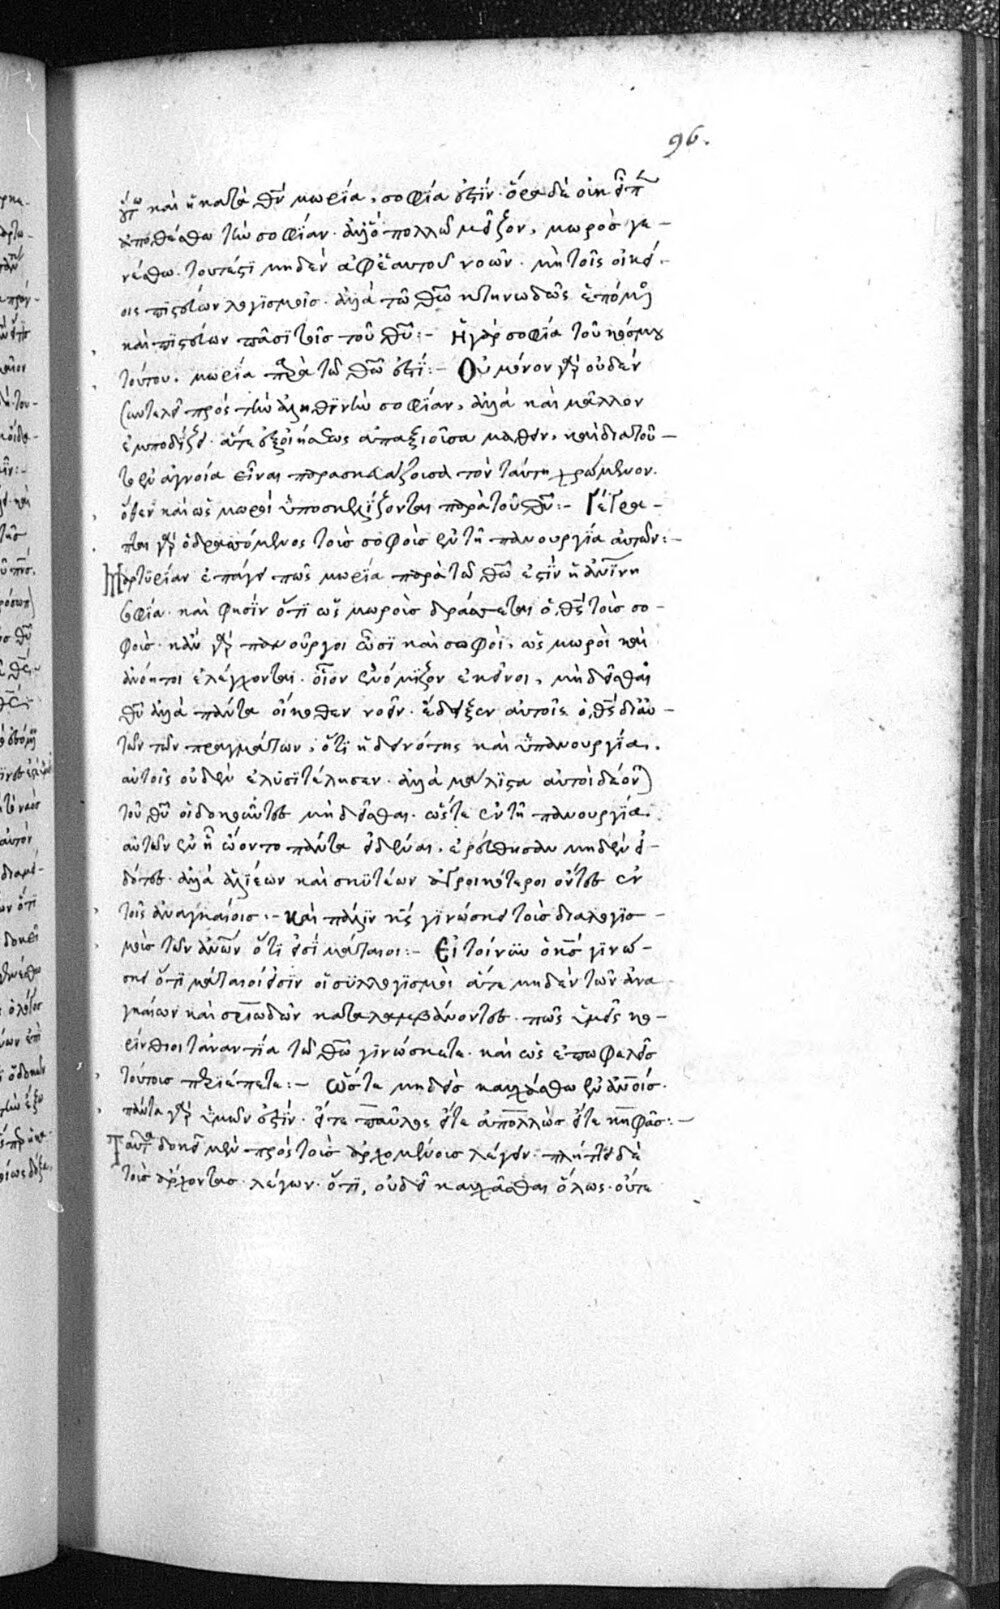 96.
οὕτω καὶ ἡ κατὰ θν̄ μωρία, σοφία ἐστίν· ὅρα δὲ οὐκ εἶπεν
ἀποθέσθω τὴν σοφίαν· ἀλλ' ὃ πολλῷ μεῖζον, μωρὸς γε-
νέσθω. τουτέστι μηδὲν ἀφ' ἑαυτοῦ νοῶν· μὴ τοῖς οἰκεί-
οις πιστεύων λογισμοῖς· ἀλλὰ τῷ θῶ κτηνωδῶς ἑπόμενος
καὶ πιστεύων πᾶσι τοῖς τοῦ θῦ:- Ἡ γὰρ σοφία τοῦ κόσμου
τούτου. μωρία παρὰ τῷ θῶ ἐστί:- Οὐ μόνον γὰρ οὐδὲν
συντελεῖ πρὸς τὴν ἀληθινὴν σοφίαν, ἀλλὰ καὶ μᾶλλον
ἐμποδίζει· ἅτε ἐξ οἰήσεως ἀπαξιοῦσα μαθεῖν, καὶ διατοῦ-
το ἐν ἀγνοία εἶναι παρασκευάζουσα τὸν ταύτη χρώμενον.
ὅθεν καὶ ὡς μωροὶ ὑποσκελίζονται παρὰ τοῦ θῦ:- Γέγρα-
πται γὰρ ὁ δρασσόμενος τοὺς σοφοὺς ἐν τῆ πανουργία αὐτῶν:-
Μαρτυρίαν ἐπάγει πῶς μωρία παρὰ τῷ θῶ ἐστὶν ἡ ἀνίνη
σοφία· καὶ φησὶν ὅτι ὡς μωροὺς δράσσεται ὁ θς τοὺς σο-
φοὺς· κἂν γὰρ πανοῦργοι ὦσι καὶ σοφοὶ, ὡς μωροὶ καὶ
ἀνόητοι ἐλέγχονται· οἷον ἐνόμιζον ἐκεῖνοι, μὴ δεῖσθαι
θῦ ἀλλὰ πάντα οἴκοθεν νοεῖν· ἔδειξεν αὐτοῖς ὁ θς δι' αὐ-
τῶν τῶν πραγμάτων, ὅτι ἡ δεινότης καὶ ἡ πανουργία.
αὐτοῖς οὐδὲν ἐλυσιτέλησεν· ἀλλὰ μάλιστα αὐτοὶ δέονται
τοῦ θῦ οἱ δοκοῦντες μὴ δεῖσθαι· ὥστε ἐν τῆ πανουργία
αὐτῶν ἐν ἧ ᾤοντο πάντα εἰδέναι, εὑρέθησαν μηδὲν εἰ-
δότες· ἀλλὰ ἁλιέων καὶ σκυτέων ἀγροικότεροι ὄντες ἐν
τοῖς ἀναγκαίοις:- Καὶ πάλιν κς γινώσκει τοὺς διαλογισ-
μοὺς τῶν ἀνῶν ὅτι εἰσὶ μάταιοι:- Εἰ τοίνυν ὁ κς γινώ-
σκει ὅτι μάταιοί εἰσιν οἱ συλλογισμοὶ ἅτε μηδὲν τῶν ἀνα-
γκαίων καὶ σριωδῶν καταλαμβάνοντες· πῶς ὑμεῖς κο-
ρίνθιοι τἀναντία τῷ θῶ γινώσκετε· καὶ ὡς ἐπωφελεῖς
τούτοις περιέπετε:- Ὥστε μηδεὶς καυχάσθω ἐν ἀνοις·
πάντα γὰρ ὑμῶν ἐστίν· εἴτε παῦλος εἴτε ἀπολλὼς εἴτε κηφᾶς:-
Ταῦτα δοκεῖ μὲν πρὸς τοὺς ἀρχομένους λέγειν· πλήττει δὲ
τοὺς ἄρχοντας· λέγων· ὅτι, οὐ δεῖ καυχᾶσθαι ὅλως· οὔτε